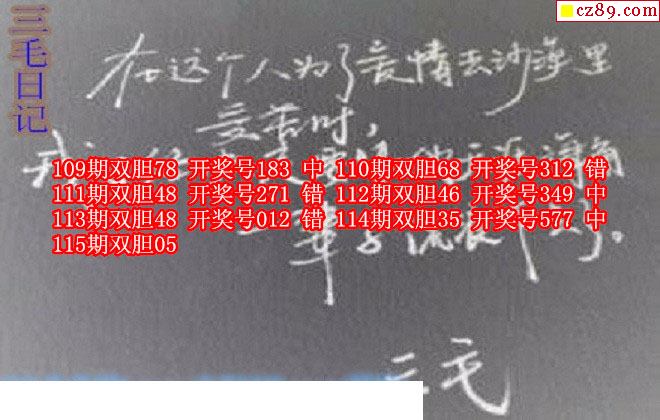 cz89.com
三毛日记
在这个人为了爱情去沙漠里
受苦时，
109期双胆78 开奖号183 中 110期双胆68 开奖号312 错
111期双胆48 开奖号271 错 112期双胆46 开奖号349 中
113期双胆48 开奖号012 错 114期双胆35 开奖号577 中
115期双胆05
三毛